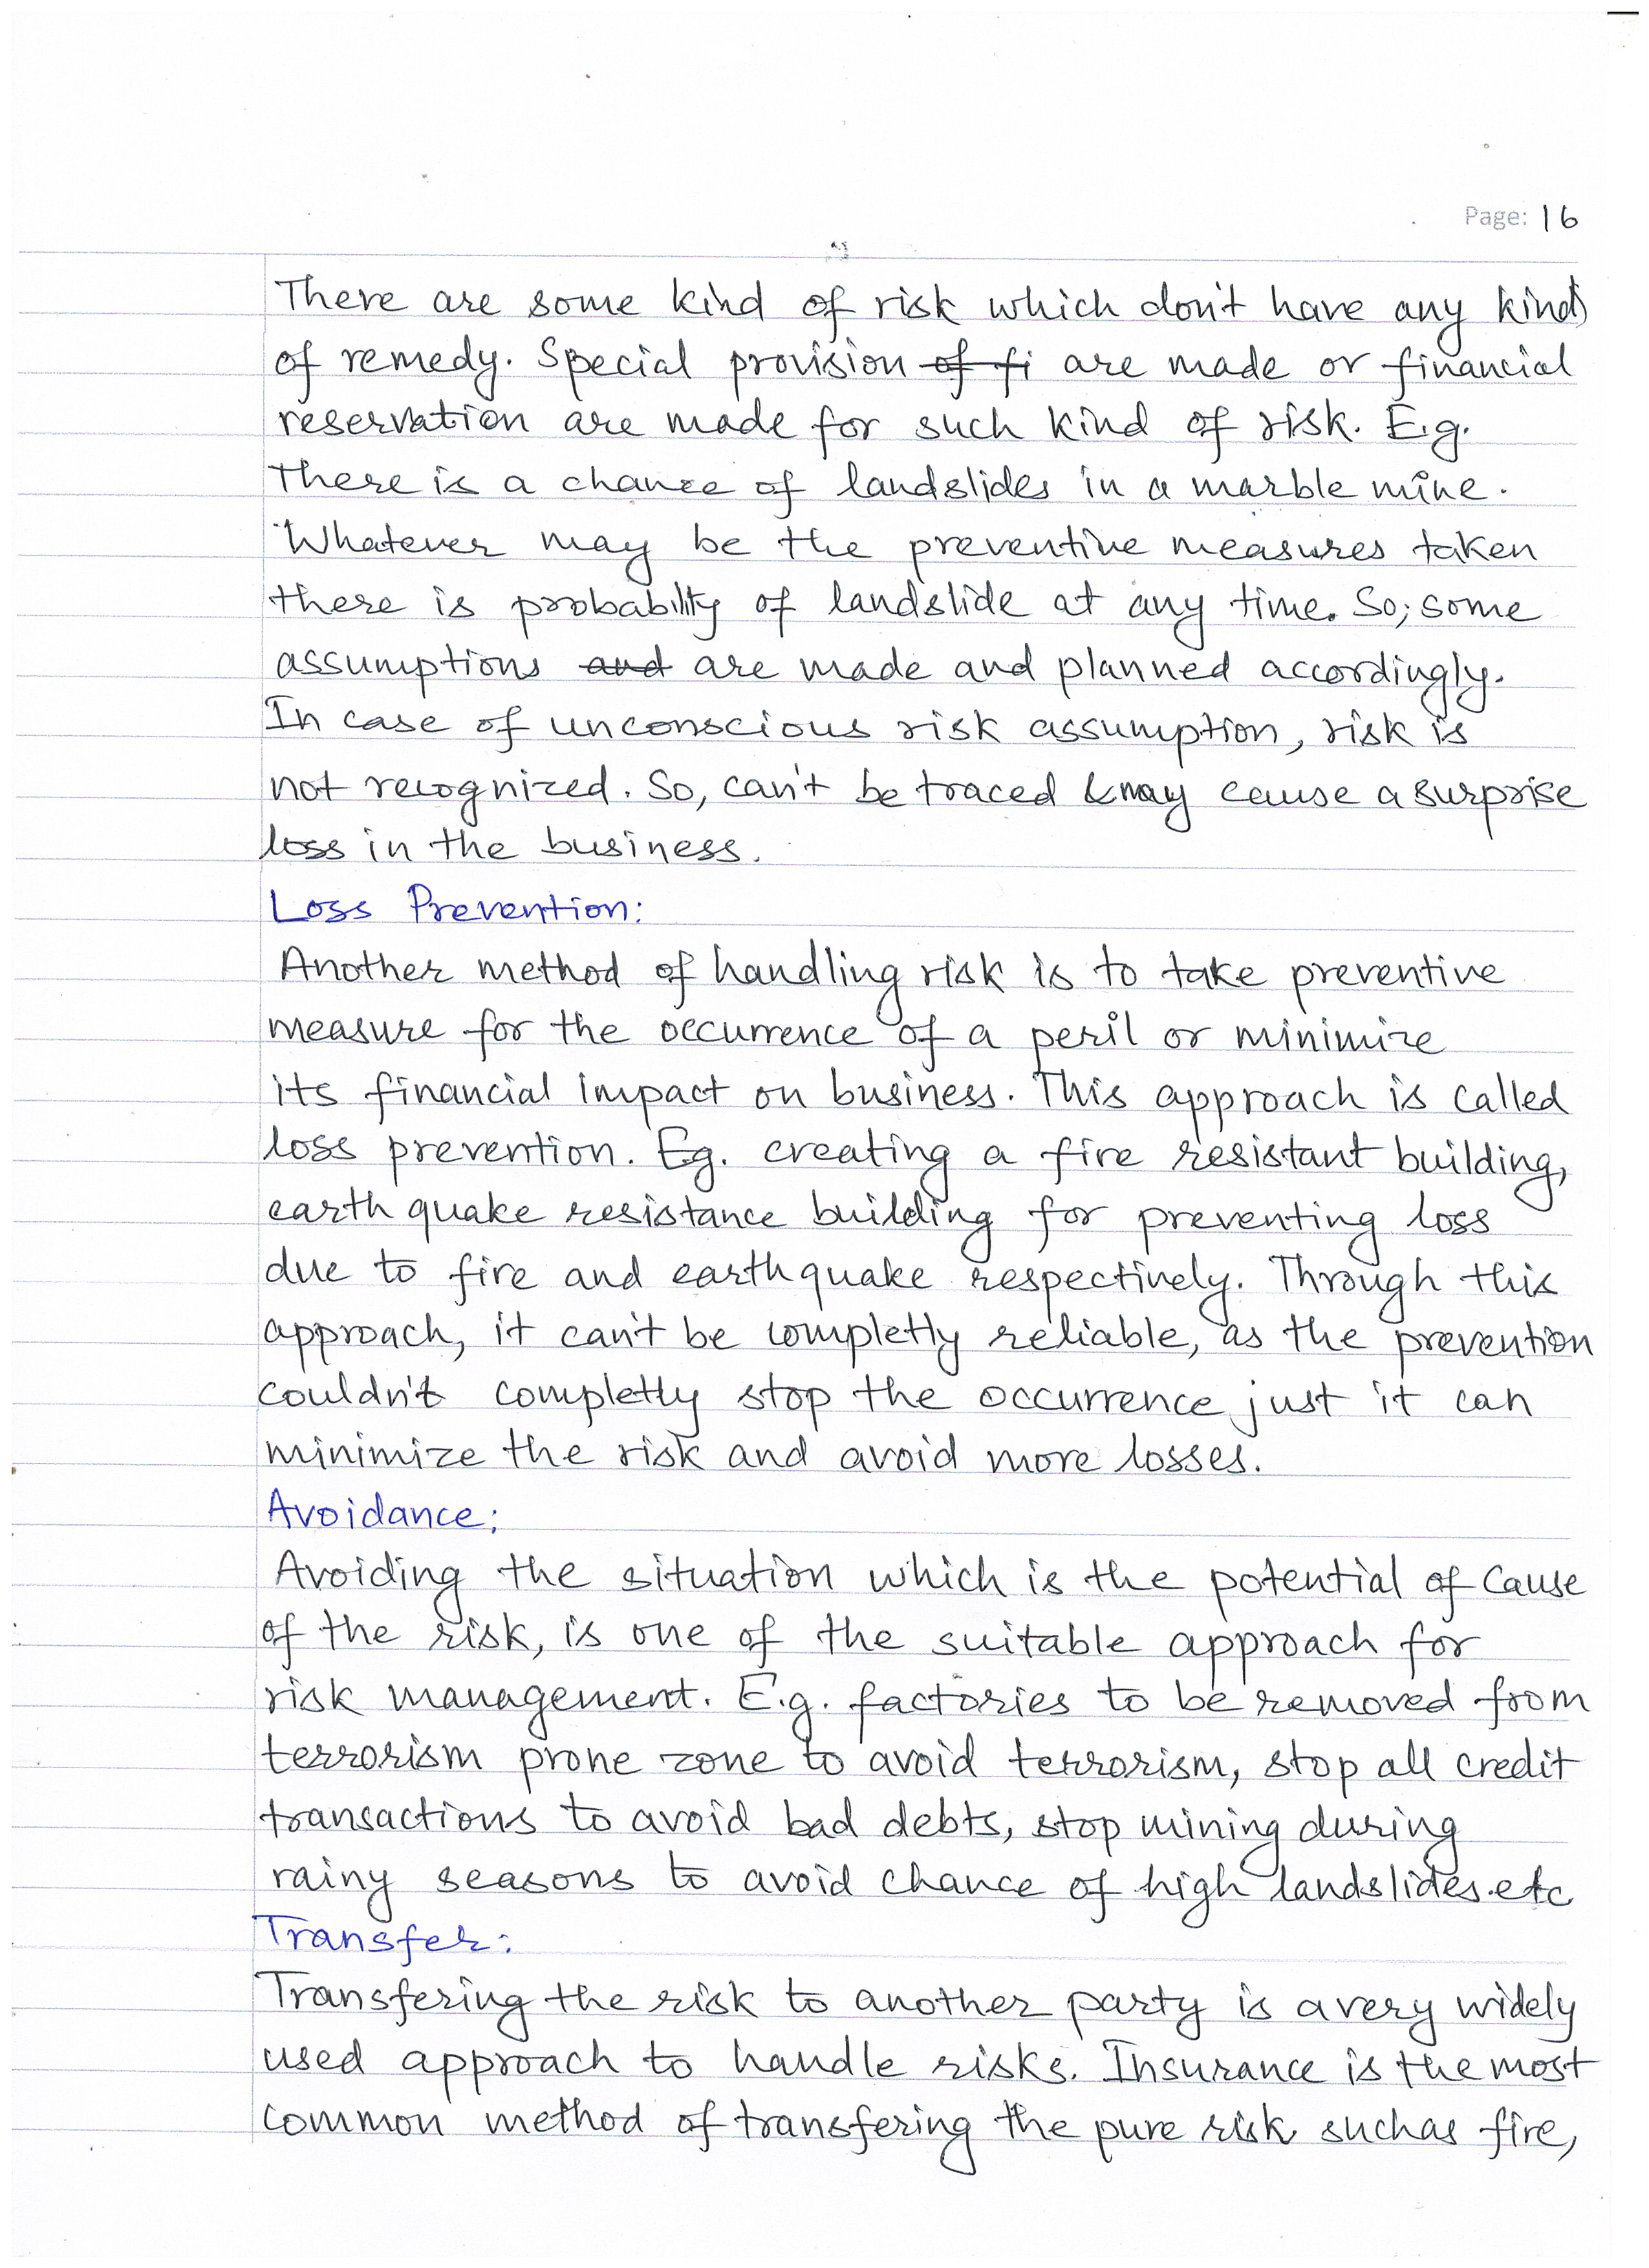 Page: 16
There are some kind of risk which don't have any kind
of remedy. Special provision ~~of fi~~ are made or financial
reservation are made for such kind of risk. E.g.
There is a chance of landslides in a marble mine.
Whatever may be the preventive measures taken
there is probability of landslide at any time. So; some
assumptions ~~and~~ are made and planned accordingly.
In case of unconscious risk assumption, risk is
not recognized. So, can't be traced & may cause a surprise
loss in the business.
Loss Prevention:
Another method of handling risk is to take preventive
measure for the occurrence of a peril or minimize
its financial impact on business. This approach is called
loss prevention. Eg. creating a fire resistant building,
earth quake resistance building for preventing loss
due to fire and earth quake respectively. Through this
approach, it can't be completly reliable, as the prevention
couldn't completly stop the occurrence just it can
minimize the risk and avoid more losses.
Avoidance:
Avoiding the situation which is the potential of cause
of the risk, is one of the suitable approach for
risk management. E.g. factories to be removed from
terrorism prone zone to avoid terrorism, stop all credit
transactions to avoid bad debts, stop mining during
rainy seasons to avoid chance of high landslides.etc
Transfer:
Transfering the risk to another party is a very widely
used approach to handle risks. Insurance is the most
common method of transfering the pure risk such as fire,